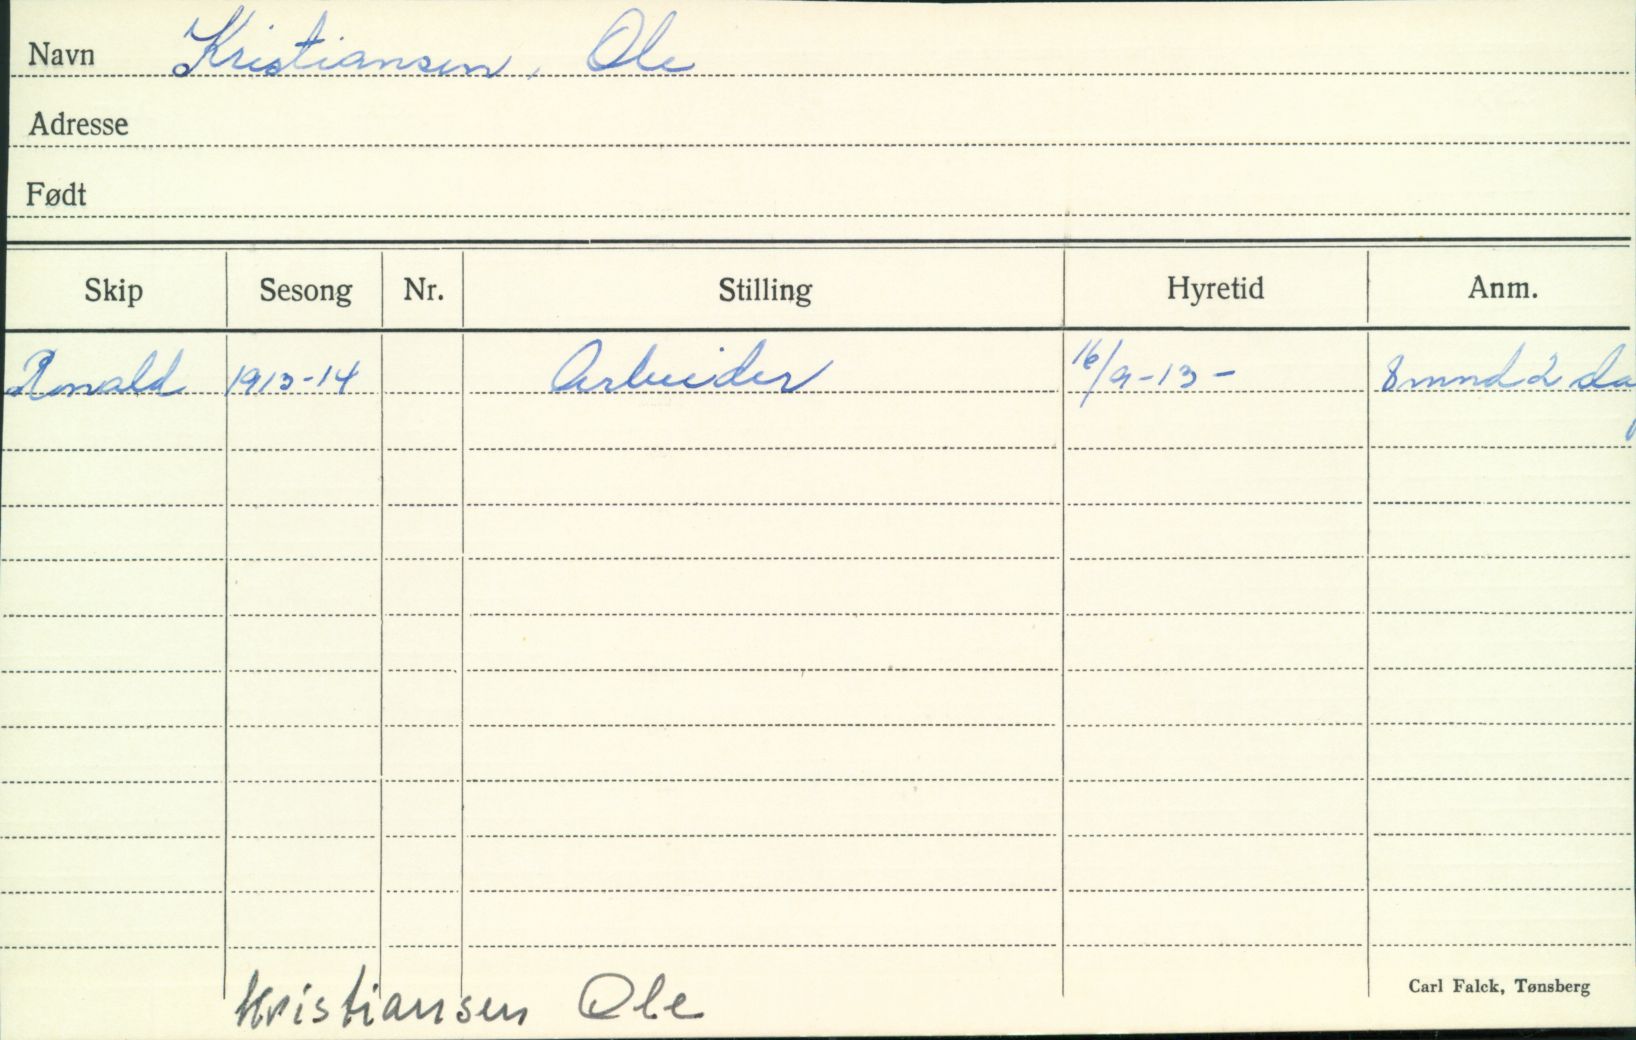 Navn Kristiansen, Ole
Adresse
Født
Skip Sesong Nr. Stilling Hyretid Anm.
Ronald 1913-14 Arbeider 16/9-13- 8 mnd 2 dag
Kristiansen Ole
Carl Falck, Tønsberg